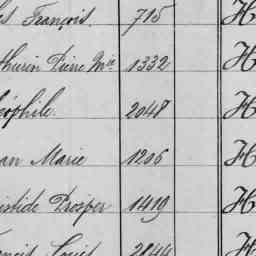 François. 715 H
thurin Pierre Mie 1332 H
éophile. 2048 H
an Marie 1206 H
istide Prosper 1419 H
Louis 2844 H